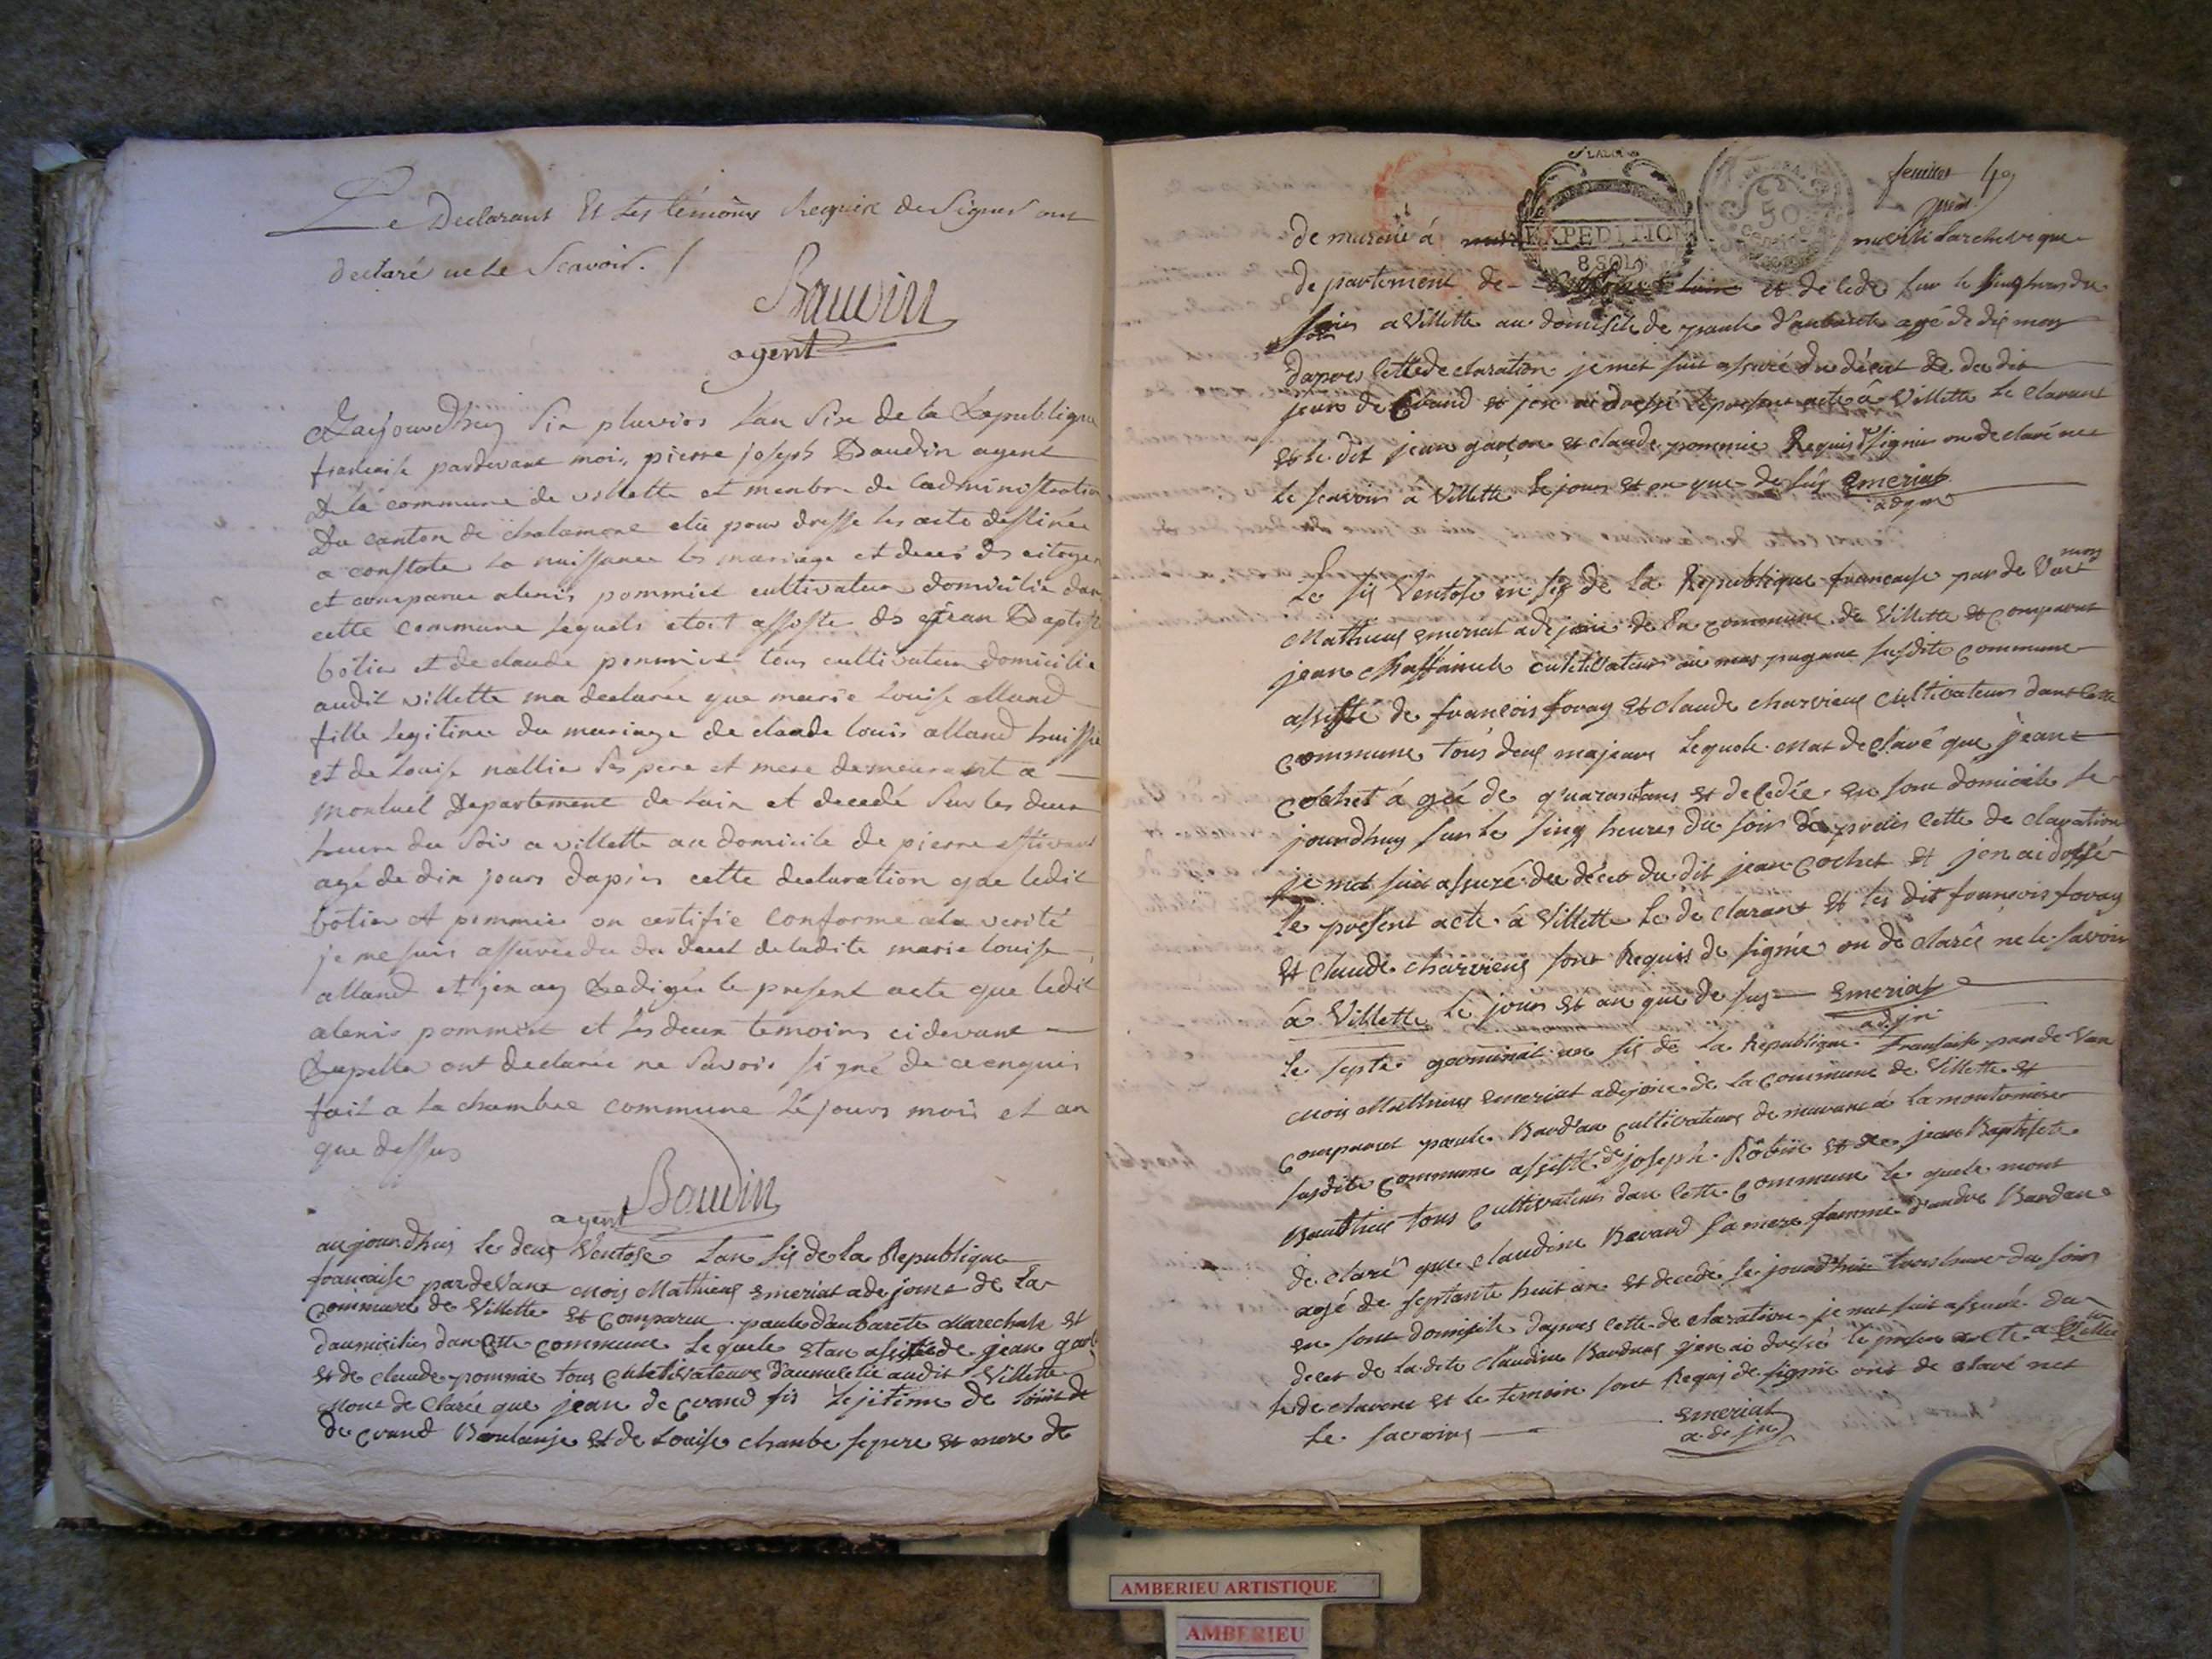 Le Declarant Et Les témoins Requise de Signer ont
declaré ne le Scavoir. /
Baudin
agent
aujourdhuy Six pluvios Lan Sixe de la Republique
francaise pardevant moi, pierre joseph Baudin agent
De la commune de villette et menbre de Ladministration
Du canton de chalamone elu pour dresse les acte destinée
a constate la naissance les mariage et deces des citoyen
et comparue alexis pommiet cultivateur domicilie dan
cette commune lequels etoit assiste de jean Baptist
botier et de claude pommiet tous cultivateur domicilie
audit villette ma declarée que marie Louise alland
fille legitime du mariage de claude louis alland huissie
et de Louise nallie Ses pere et mere demeurant a
montuel Departement de Lain et decedé Sur les deux
heure du Soir a villette au domicile de pierre estivant
agé de dix jours dapres cette declaration que ledit
botier et pommie on certifie conforme a la verité
je me suis assurée du deces de ladite marie louise
alland et jen ay Redigée le present acte que ledit
alexis pommiet et les deux temoins cidevant
Rapelle ont declarée ne Savoir signé de ce enquis
fait a la chambre commune Le jours mois et an
que dessus
Baudin
agent
aujourdhuy Le deux Ventose Lan six de la Republique
francaise par de Vant mois Mathieux Emeriat adejoint de La
Commune de Villette Et Comparu paule daubarete Marechale Et
daumicilies dan Cette commune Lequele Etan assiste de jean
Et de claude pommie tous cultivateurs audit Villette
Mont de Clarée que jean de Crand fis Lejitime de
de Crand Boulanje Et de Louise chambe se pere Et mere de
feuillet 49
EXPEDITION
8 SOLS
50
de murant á
de partement de Et de cede sur le Sinq heures du
Soir a Villette au domisile de paule daubarete agé de dix moy
dapres Cette declaration je met suit assuré du décet de du dit
jean de Crand Et jen ai dressé le present acte â Villette Le Clarant
Et le dit jean garçon Et claude pommie Requis de Signie on de claré ne
Le Scavoir â Villette Le jours Et an que de sus Emeriat
adjoin
Le six Ventose an six de La Republique francaise par de Vant moy
Mathieux Emeriat adejoint de La Commune de Villette Et Comparut
jean Chaffaniele cultivateur au mas pugane susdite commune
assisté de francois fovay Et claude charvieux cultivateurs dans Cette
Commune tous deux majeurs Lequele Mat de Claré que jean
Cochet â gée de quarantans Et decedée en sont domicile Le
jourdhuy sur Le sinq heures du soir dapreis Cette de claration
je met suit assuré du décet du dit jean Cochet Et jen ai dressé
Le present acte â Villette Le declarant Et Les dit francois fovay
Et claude charvieux sont Requis de signée on de clarée ne Le savoir
â Villette Le jour Et an que de sus Emeriat
adjoi
Le septe germinal an six de La Republique francaise par de Van
mois Mathieux Emeriat adejoint de La Commune de Villette Et
Comparaet paule Bardan cultivateur demurant â La montonniere
susdite commune assisté de joseph Robin Et de jean Baptiste
Bauthier tous Cultivateurs dan Cette Commune Le quele mont
declaré que claudine Bavand sa mere famme dandré Bardan
agé de septante huit an Et decedé Le jourdhui trois heure du soir
en sont domisile dapres Cette de claration je met suit assuré du
decet de La dite claudine Bavand jen ai dressé Le present acte a Villette
Le declarant Et Le temoin sont Requi de signie ont de claré net
Le Scavoir
Emeriat
adejn
AMBERIEU ARTISTIQUE
AMBERIEU